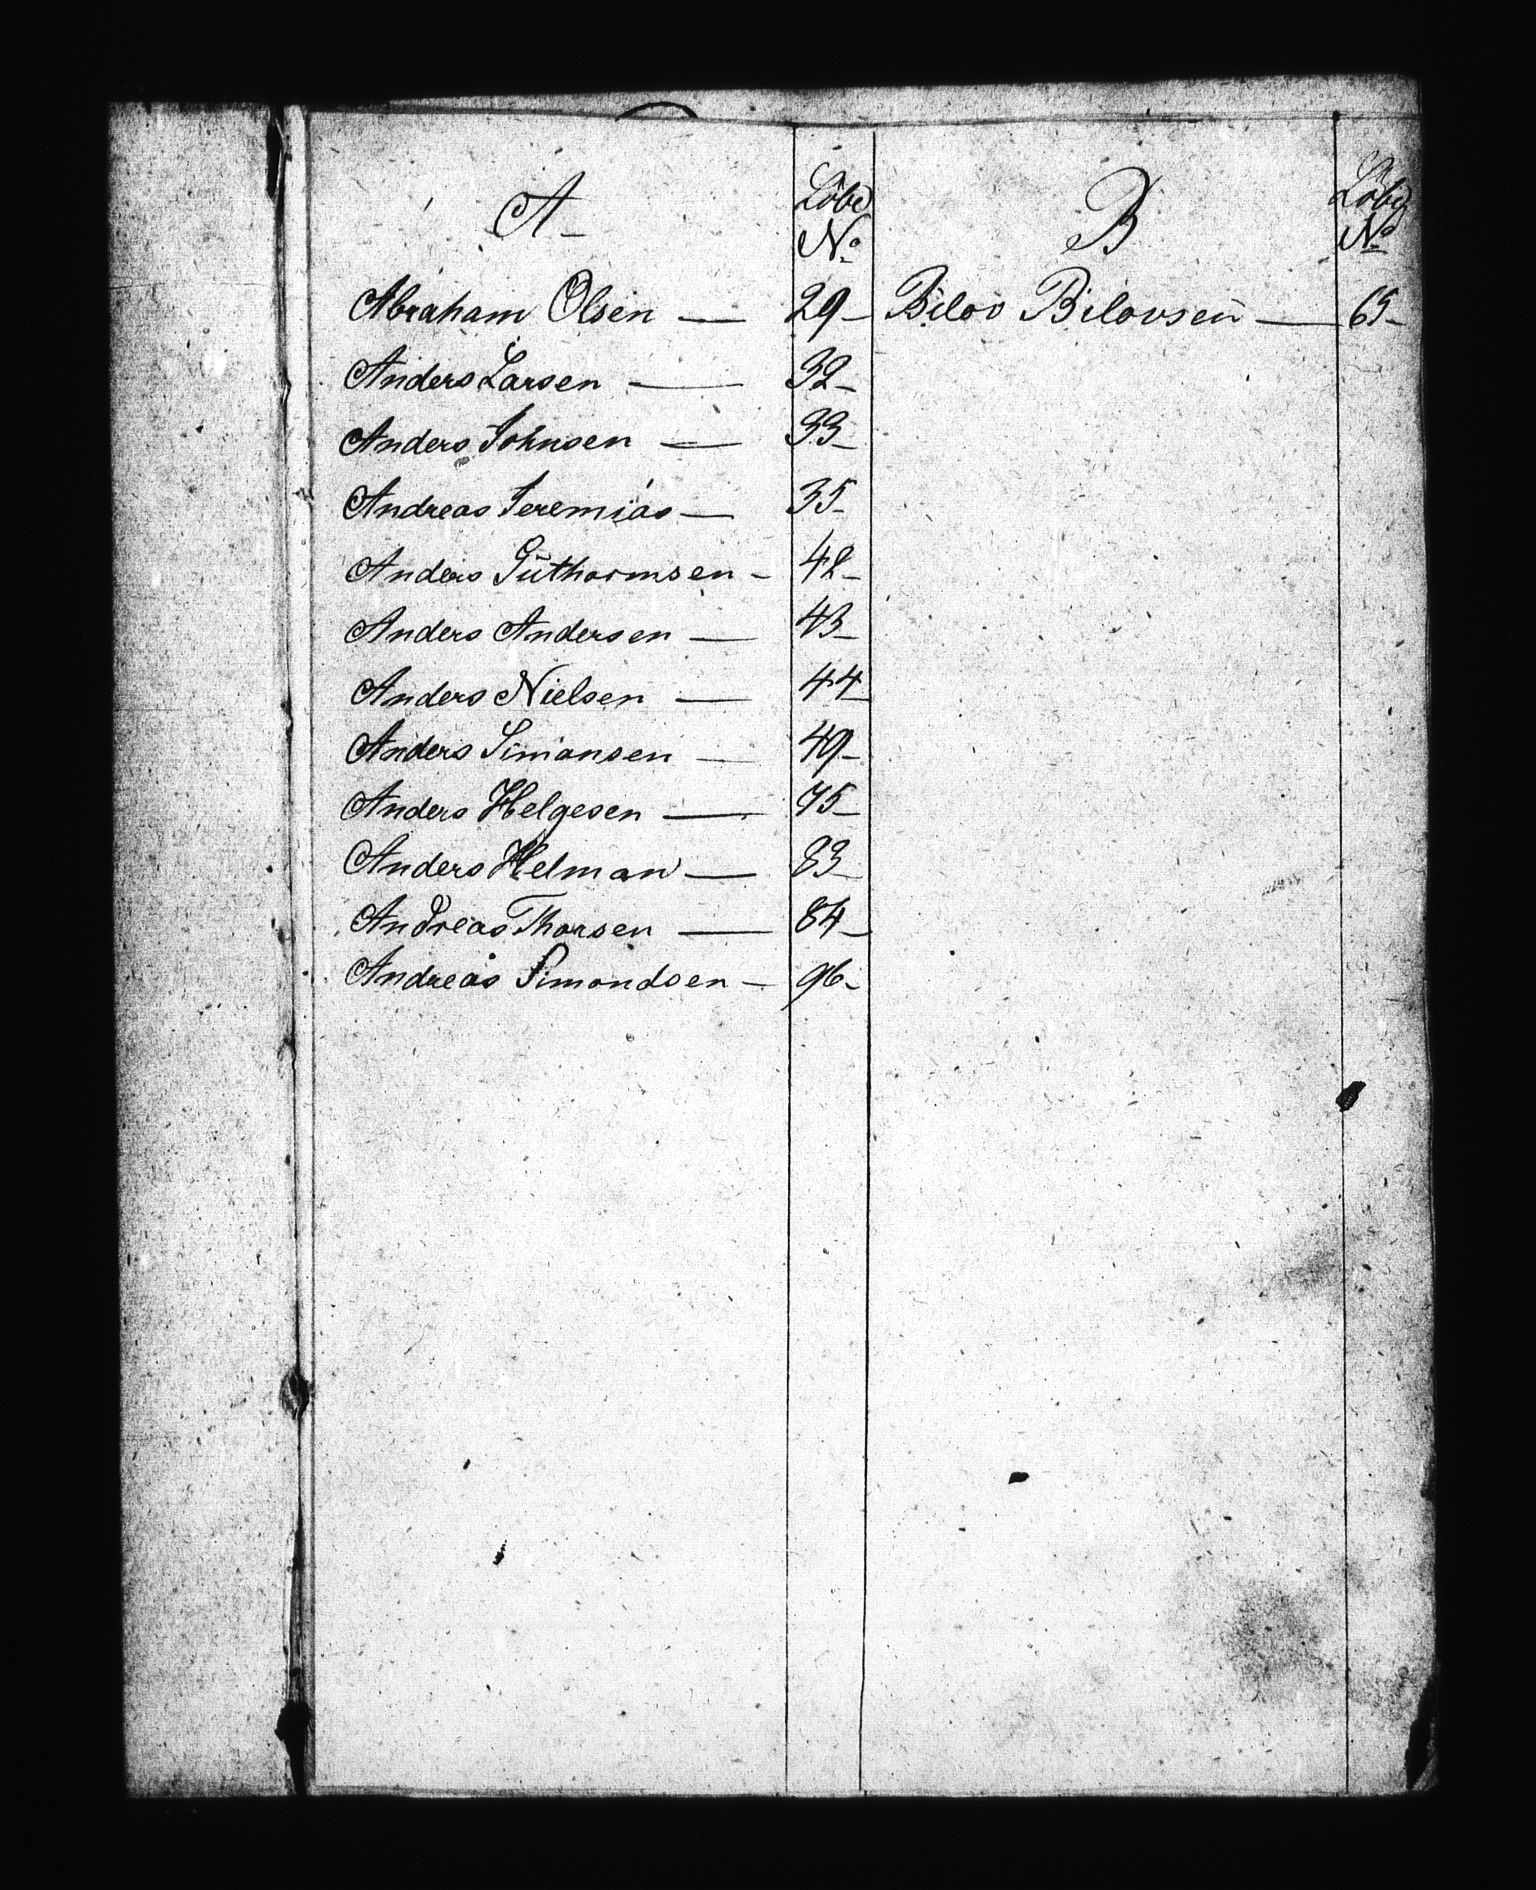 A
Löbe
No
B
Löbe
No
Abraham Olsen — 29 –
Biloo Biloosen — 65 –
Anders Larsen — 32 –
Anders Johnsen — 33 –
Andreas Jeremias — 35 –
Anders Guthormsen – 42 –
Anders Andersen — 43 –
Anders Nielsen — 44 –
Anders Simonsen — 49 –
Anders Helgesen — 75 –
Anders Helman — 83 –
Andreas Thorsen — 84 –
Andreas Simondsen – 96 –